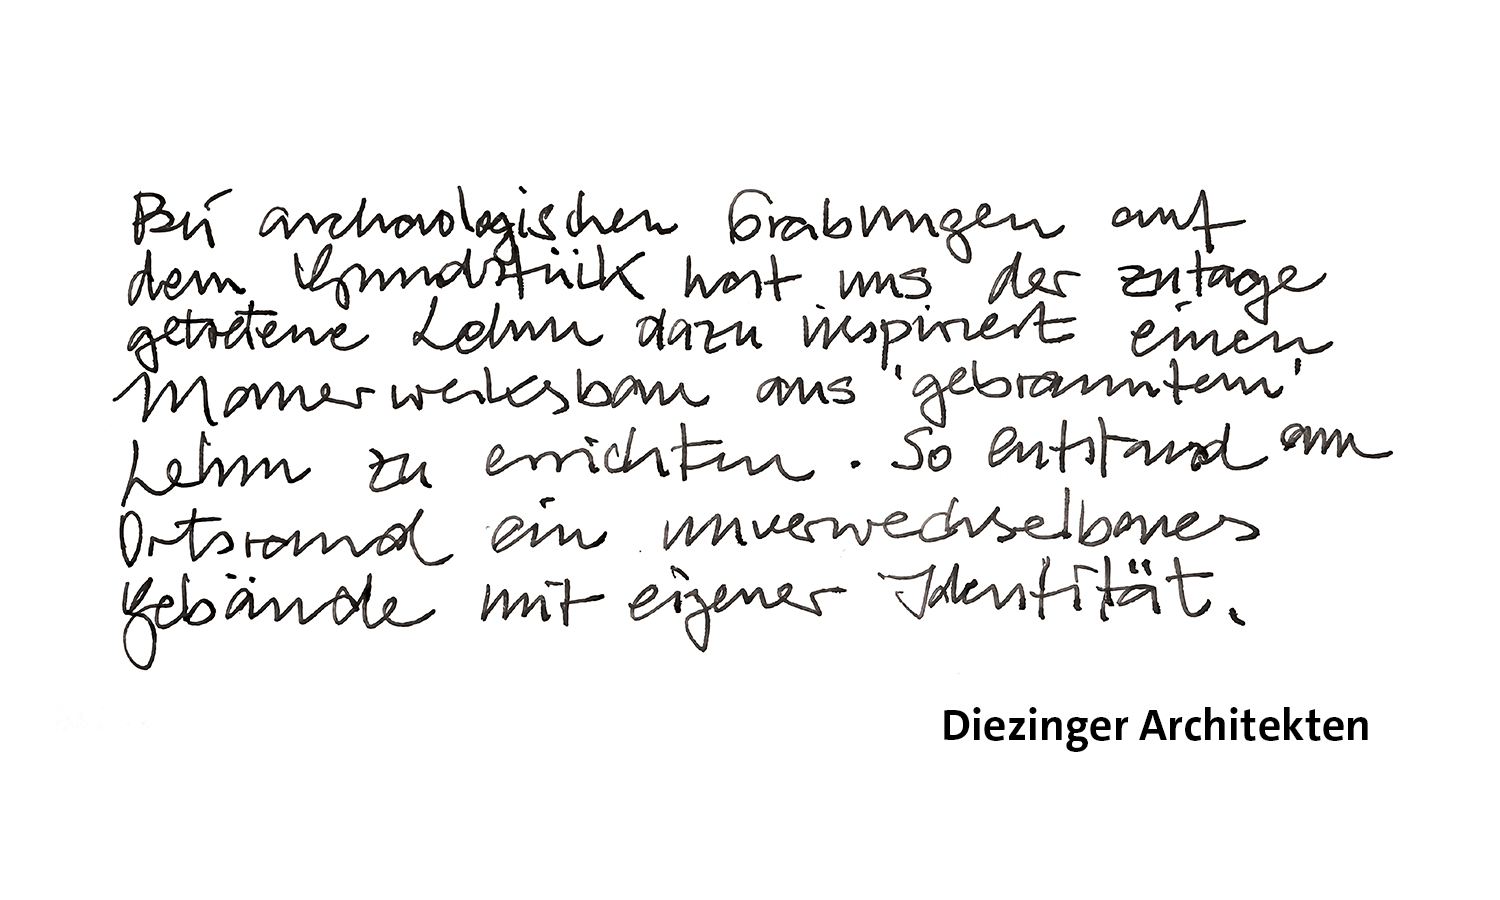 Bei archaologischen Grabungen auf
dem Grundstück hat uns der zutage
getretene Lehm dazu inspiriert einen
Mauerwerksbau aus 'gebranntem'
Lehm zu errichten. So entstand am
Ortsrand ein unverwechselbares
Gebäude mit eigener Identität.
Diezinger Architekten